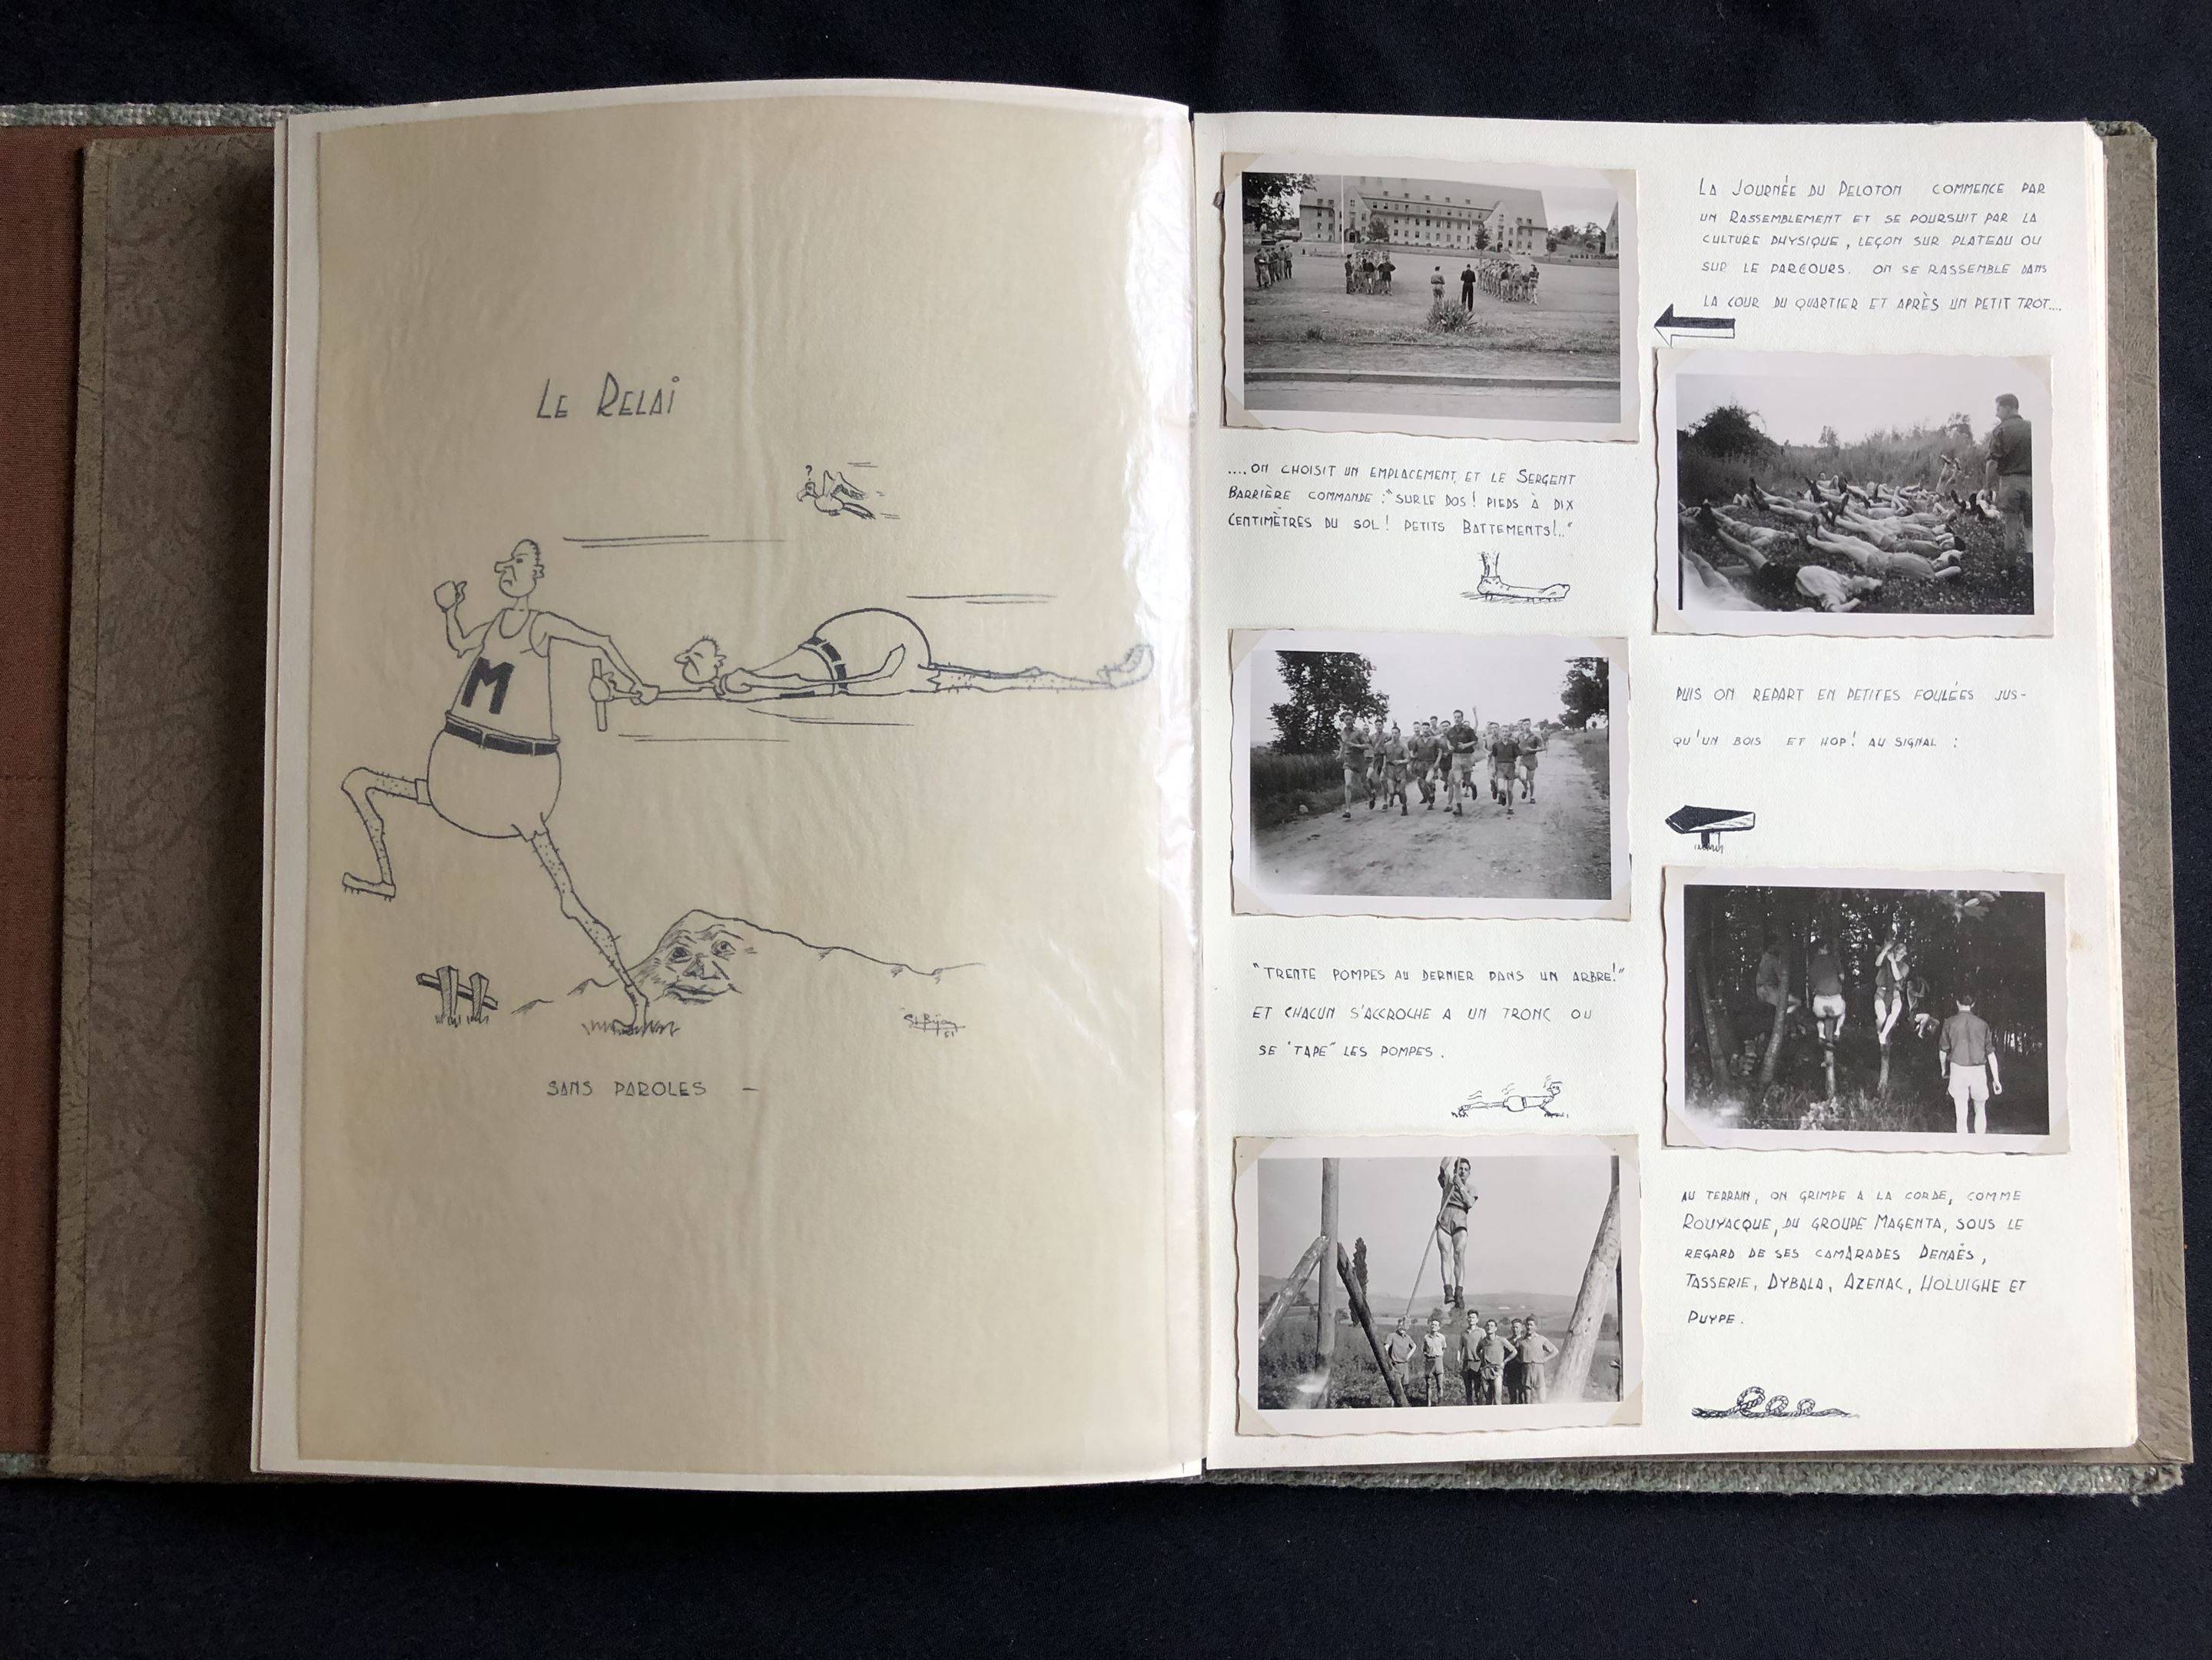 LE RELAI
?
M
SANS PAROLES -
LA JOURNÉE DU PELOTON COMMENCE PAR
UN RASSEMBLEMENT ET SE POURSUIT PAR LA
CULTURE PHYSIQUE, LEÇON SUR PLATEAU OU
SUR LE PARCOURS. ON SE RASSEMBLE DANS
LA COUR DU QUARTIER ET APRÈS UN PETIT TROT....
....ON CHOISIT UN EMPLACEMENT ET LE SERGENT
BARRIÈRE COMMANDE : "SUR LE DOS! PIEDS À DIX
CENTIMÈTRES DU SOL! PETITS BATTEMENTS!.."
PUIS ON REPART EN PETITES FOULÉES JUS-
QU'UN BOIS ET HOP! AU SIGNAL :
"TRENTE POMPES AU DERNIER DANS UN ARBRE!"
ET CHACUN S'ACCROCHE A UN TRONC OU
SE "TAPE" LES POMPES.
AU TERRAIN, ON GRIMPE A LA CORDE, COMME
ROUYACQUE, DU GROUPE MAGENTA, SOUS LE
REGARD DE SES CAMARADES DENAËS,
TASSERIE, DYBALA, AZENAC, HOLUIGHE ET
PUYPE.